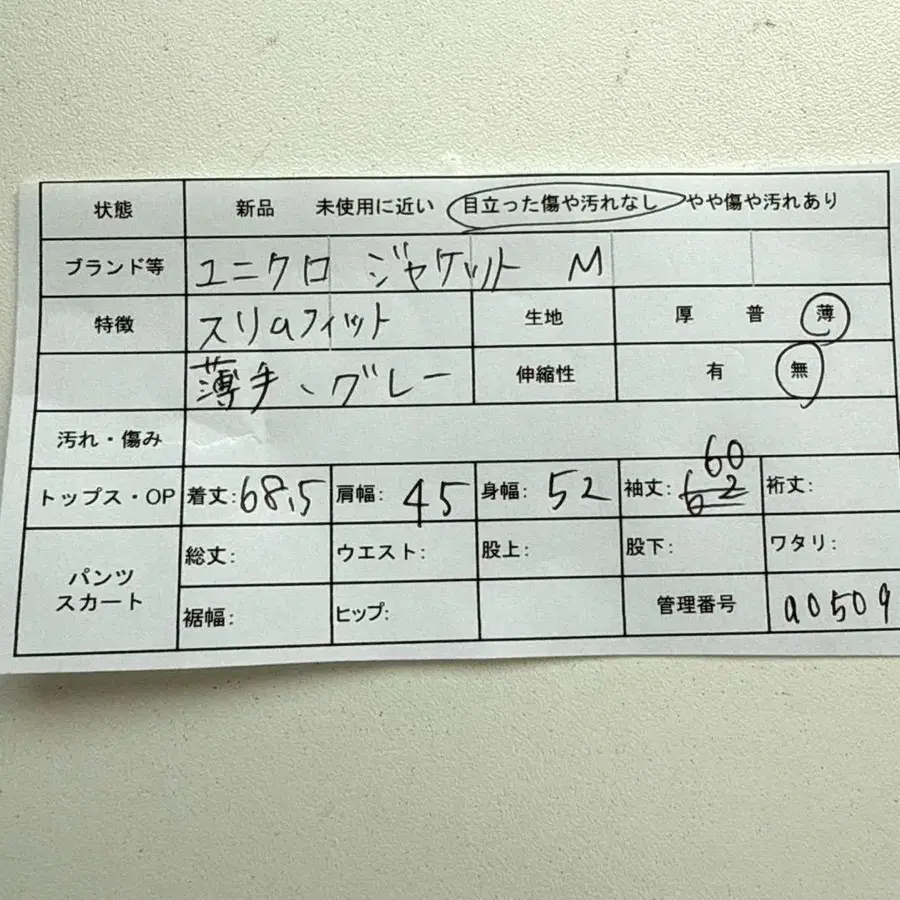 状態 新品 未使用に近い 目立った傷や汚れなし やや傷や汚れあり
ブランド等 ユニクロ ジャケット M
特徴 スリムフィット 生地 厚 普 薄
薄手、グレー 伸縮性 有 無
汚れ・傷み
トップス・OP 着丈:68.5 肩幅: 45 身幅: 52 袖丈: 62 60 裄丈:
パンツ スカート
総丈: ウエスト: 股上: 股下: ワタリ:
裾幅: ヒップ: 管理番号 a0509